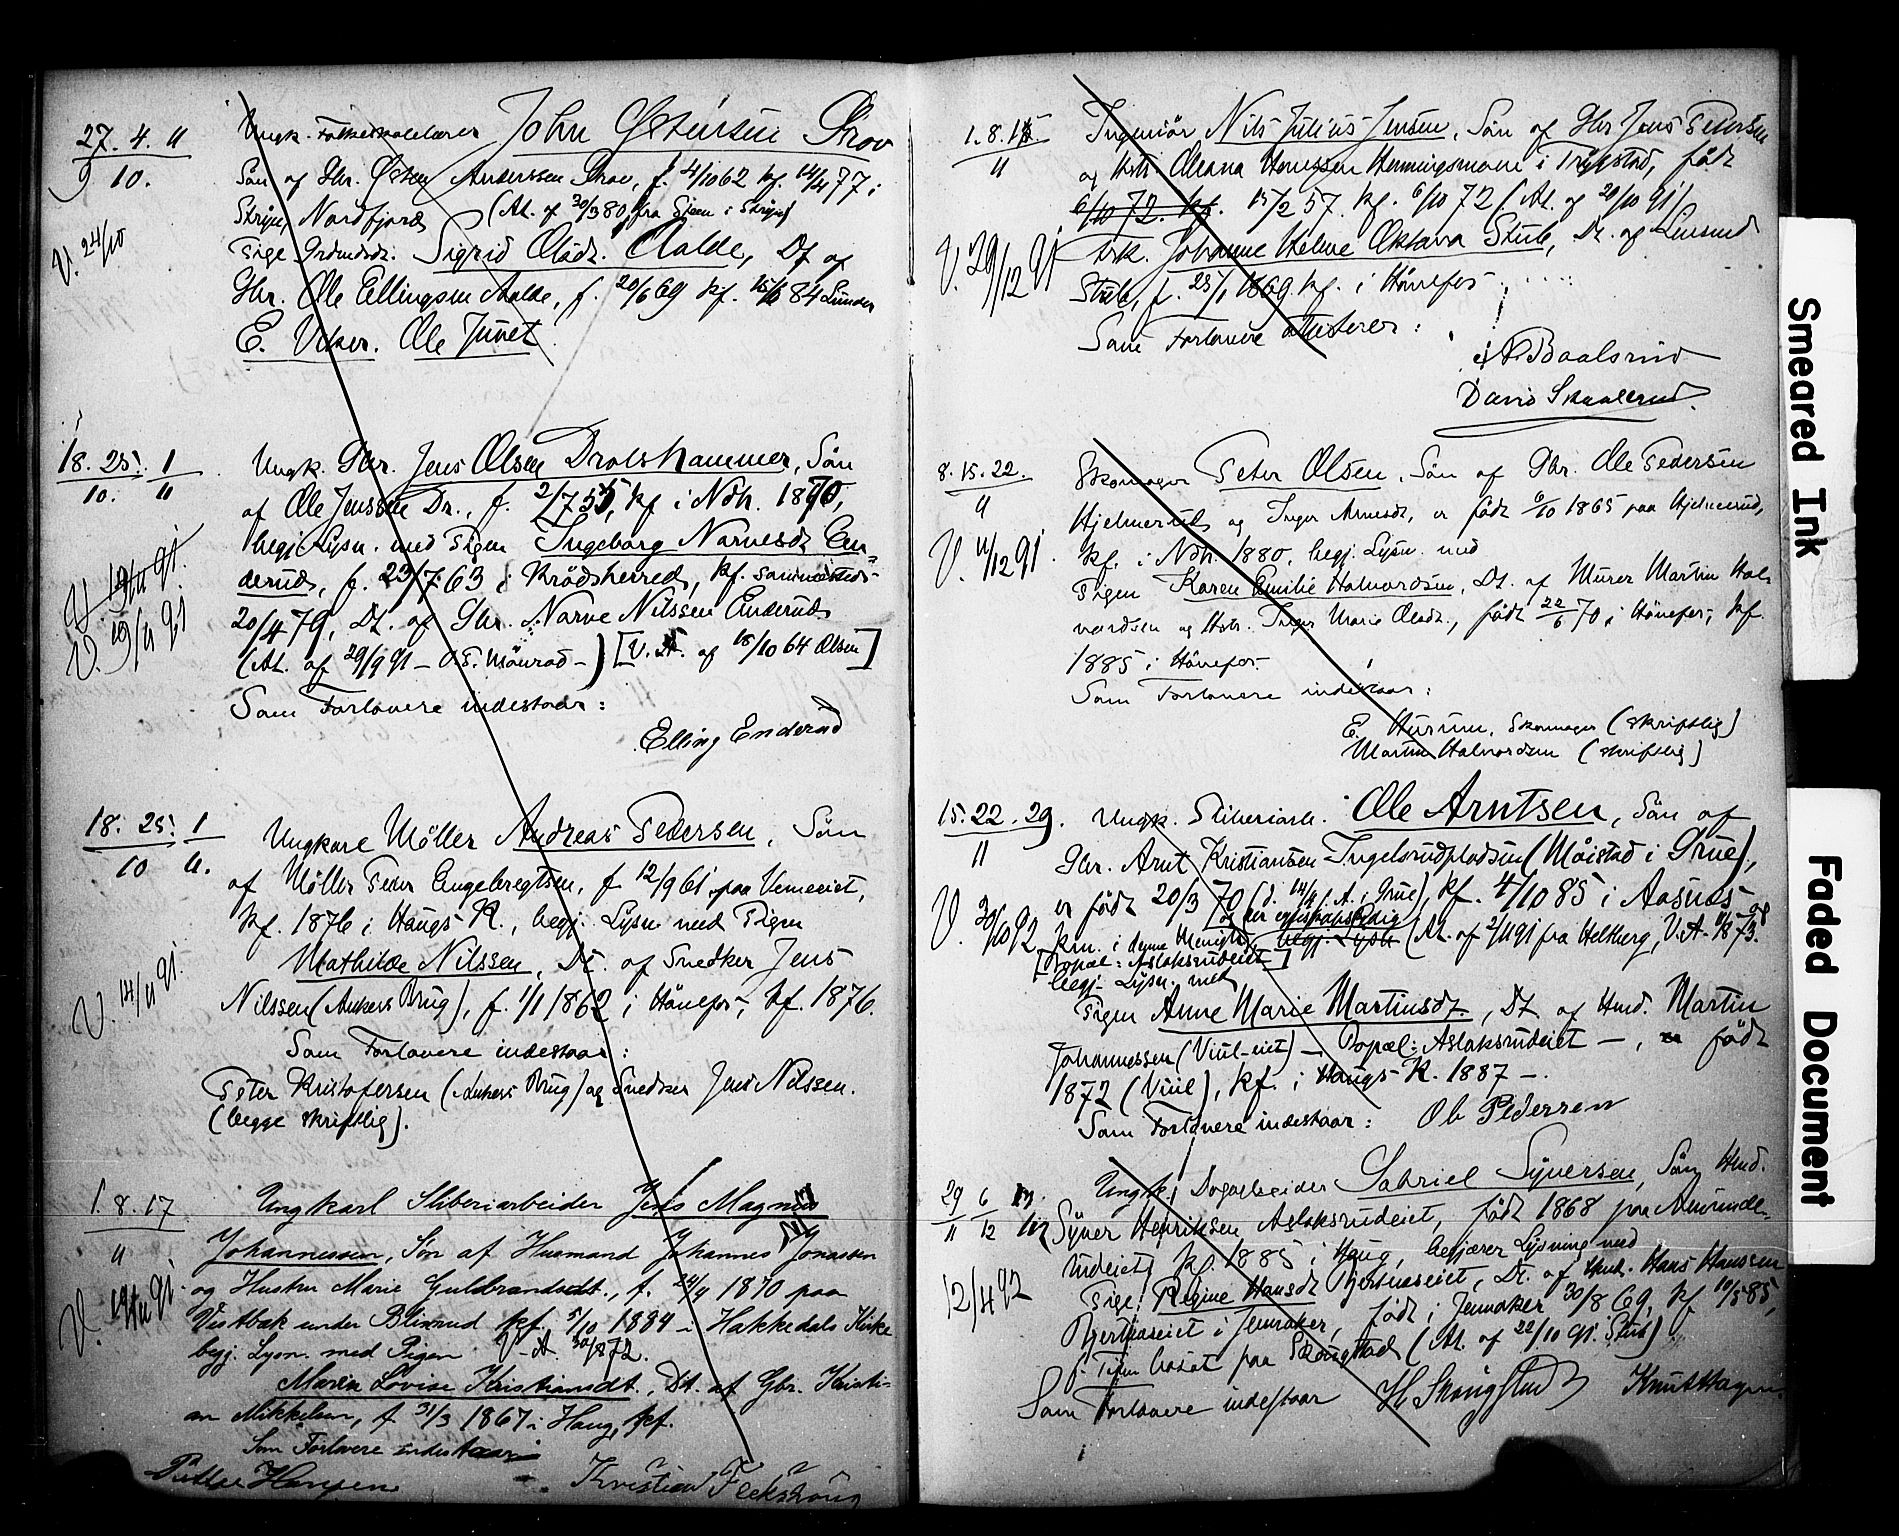 27. 4. 11
9 10.
V. 24/10
Ungk. Folkeskolelærer John Østensen Skov
Søn af Gbr. Østen Anderssen Skov, f. 4/10 62 kf. 14/4 77 i
Stryn, Nordfjord (At. af 30/3 80 fra
Pige Ole Ellingsen Aalde, f. 20/6 69 kf. 84 Lunder
Pige Sigrid Olsdt. Aalde, Dt. af
E. Viker. Ole Juvet.
18. 25. 1
10. 11
V. 19/11 91.
V. 19/11 91
Ungk. Gbr. Jens Olsen Drolshammer, Søn
af Ole Jenssen Dr., f. 2/7 55, kf. i Ndh. 1870,
begj. Lysn. med Pigen Ingeborg Narvesdt. En-
derud, f. 23/7 63 i Krødsherred, kf. sammesteds
20/4 79, Dt. af Gbr. Narve Nilssen Enderud
(At. af 29/9 91 – [V. At. af 18/10 64 Olsen]
Som Forlovere indestaar:
Elling Enderud
18. 25. 1
10 11.
V. 14/11 91.
Ungkarl Møller Andreas Pedersen, Søn
af Møller Peder Engebregtsen, f. 12/9 61 paa Vemeeiet,
kf. 1876 i Haugs K., begj. Lysn. med Pigen
Mathilde Nilssen, Dt. af Snedker Jens
Nilssen (Ankers Brug), f. 1/1 1862 i Hønefos, kf. 1876.
Som Forlovere indestaar:
Peter Kristofersen (Ankers Brug) og Snedker Jens Nilssen.
(begge skriftlig).
1. 8. 17
11
V. 19/11 91.
Ungkarl Sliberiarbeider Jens Magnus
Johannessen, Søn af Husmand Johannes Jonassen
og Hustru Marie Guldbrandsdt., f. 24/4 1870 paa
Vestbak under Blixrud kf. 5/10 1884 i Hakkedals Kirke
begj. Lysn. med Pigen V. A. 30/8 72.
Maren Lovise Kristiansdt., Dt. af Gbr. Kristi-
an Mikkelsen, f 31/3 1867 i Haug, kf.
Som Forlovere indestaar:
Hansen Kristian
1. 8. 15
11
V. 29/12 91
Ingeniør Nils Julius Jensen, Søn af Gbr Jens Petersen
og Hstr. Oleana Hanssen Henningsmoen i Trygstad, født
6/10 72. kf. 15/2 57. kf. 6/10 72 (At. af 20/10 91)
Frk. Johanne Helene Oktava Stub, Dt. af Lensmd
Stub, f. 25/1 1869 kf. i Hønefos
Som Forlovere attesterer:
A Baalsrud
David Skaalerud.
8. 15. 22.
11
V. 11/12 91.
Skomager Peter Olsen, Søn af Gbr. Ole Pedersen
Hjelmerud og Inger Arnesdt, er født 9/10 1865 paa Hjelmerud,
kf. i Ndh. 1880, begj. Lysn. med
Pigen Karen Emilie Halvordsen, Dt. af Murer Martin Hal-
vordsen og Hstr. Inger Marie Olsdt., født 22/6 70 i Hønefos, kf.
1885 i Hønefos.
Som Forlovere indestaar:
E. Skomager (skriftlig)
Martin Halvordsen (skriftlig)
15. 22. 29.
11
V. 30/10 92
Ungk. Sliberiarb. Ole Arntsen, Søn af
Gbr. Arnt Kristiansen Ingelsrudpladsen (Møistad i Grue),
er født 20/3 70 (d. 14/4 i A. i Grue), kf. 4/10 85 i Aasnes og
km. i denne Menighed begj. Lysn. (At. af 2/11 91 fra Helberg, V. A. 11/8 73.
[Bopæl: Aslaksrudeiet]
begj. Lysn. med
Pigen Anne Marie Martinsdt., Dt. af Hmd. Martin
Johannessen (Viul-eiet) – Bopæl: Aslaksrudeiet –, født
1872 (Viul), kf. i Haugs K. 1887 –.
Som Forlovere indestaar: Ole Pedersen
29 6 13.
11 12 12
12/4 92
Ungk. Dagarbeider Gabriel Syversen, Søn Hmd.
Syver Henriksen Aslaksrudeiet, født 1868 paa Amunde-
rudeiet, kf. 1885 i Haug, begjærer Lysning med
Pige Regine Hansdt Hjertaaseiet, Dt. af Hmd. Hans Hanssen
Hjertaaseiet i Jevnaker, født i Jevnaker 30/8 69, kf. 10/5 85,
f. Tiden bosat paa Skougstad (At. af 22/10 91. Stub).
Som Forlovere indestaar H Skougstad Knut Hagen.
Smeared Ink
Faded Document